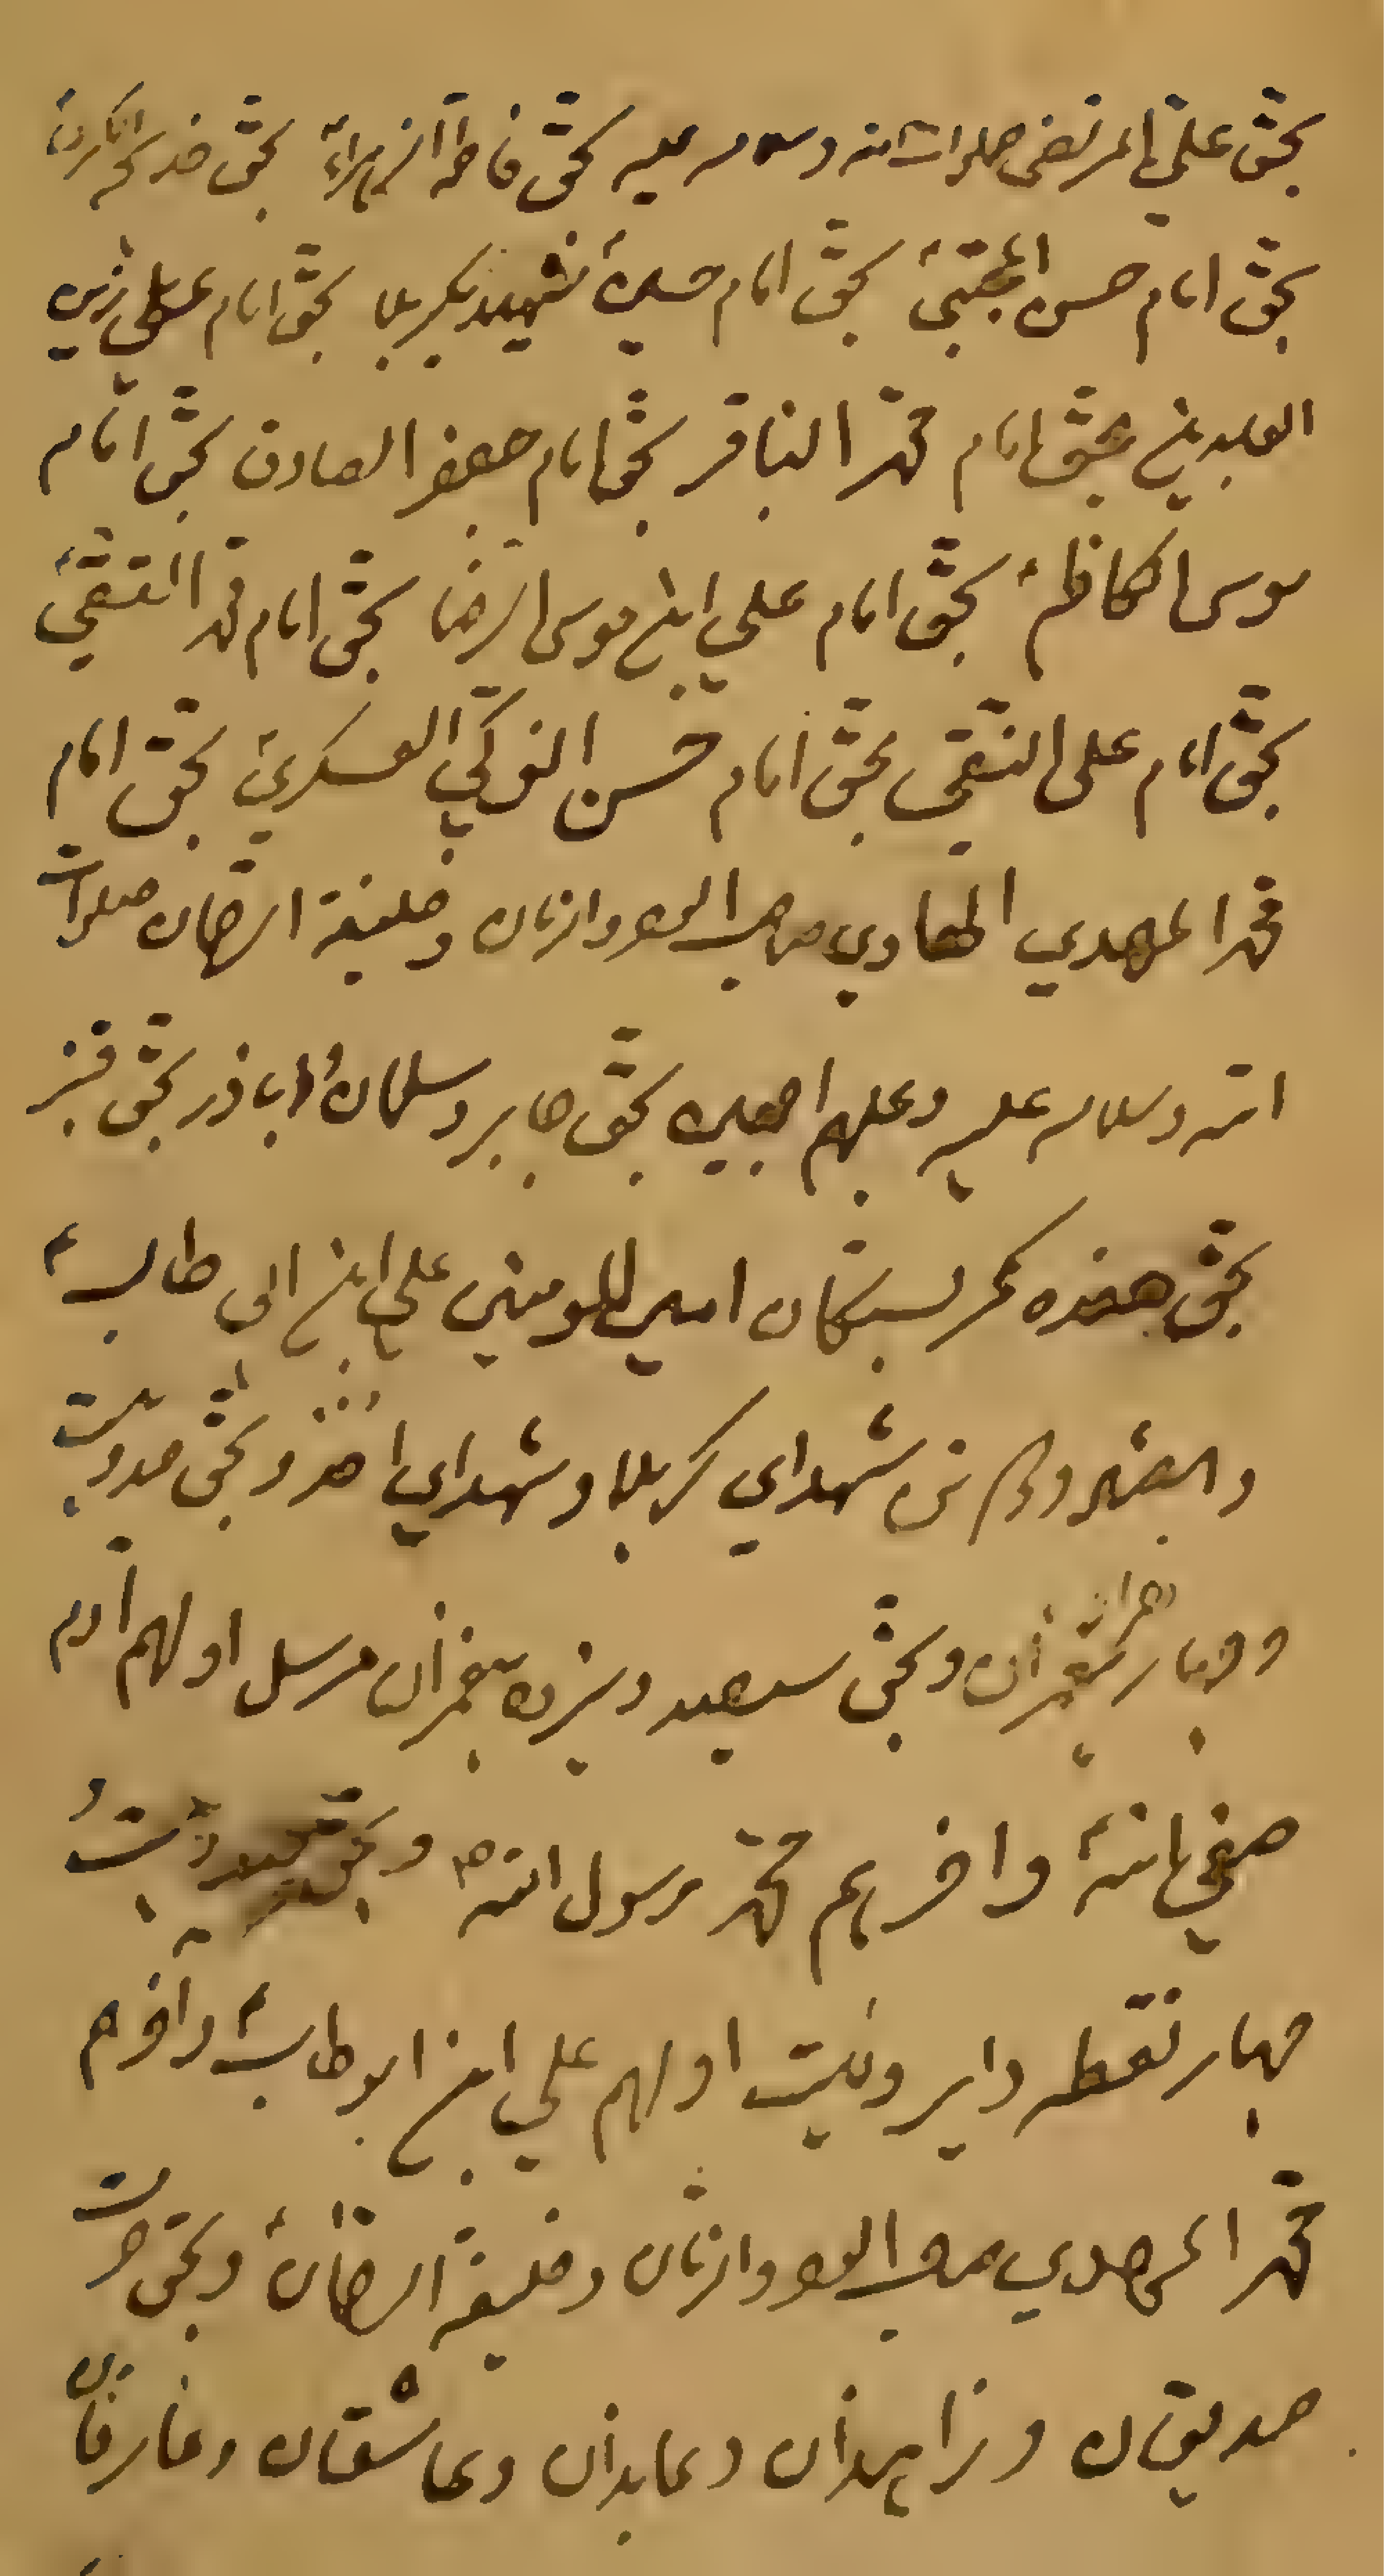 بحق علي المرتضى صلوات الله وسلامه عليه بحق فاطمة الزهراء بحق خديجة الكبرى
بحق امام حسن المجتبى بحق امام حسين شهيد بكربلا بحق امام علي زين
العابدين بحق امام محمد الباقر بحق امام جعفر الصادق بحق امام
موسى الكاظم بحق امام علي ابن موسى الرضا بحق امام محمد التقي
بحق امام على النقي بحق امام حسن الزكي العسكري بحق امام
محمد المهدي الهادي صاحب العصر والزمان وخليفة الرحمان صلوات
الله وسلامه عليه وعليهم اجمعين بحق جابر وسلمان و اباذر بحق قنبر
بحق هفده كمر بستكان امير المومنين علي ابن ابى طالب
و دو تن شهداي كربلا و شهداي احد و بحق صد وبيست
وچهار هزار پيغمبران و بحق سيصد وسيزده پيغمبران مرسل اولهم آدم
صفي الله واخرهم محمد رسول الله و بحق
چهار نقطه داير ولايت اولهم علي ابن ابو طالب وآخرهم
محمد المهدي صاحب العصر والزمان وخليفة الرحمان و بحق حرمت
صديقان و زاهدان و عابدان و عاشقان و عارفان